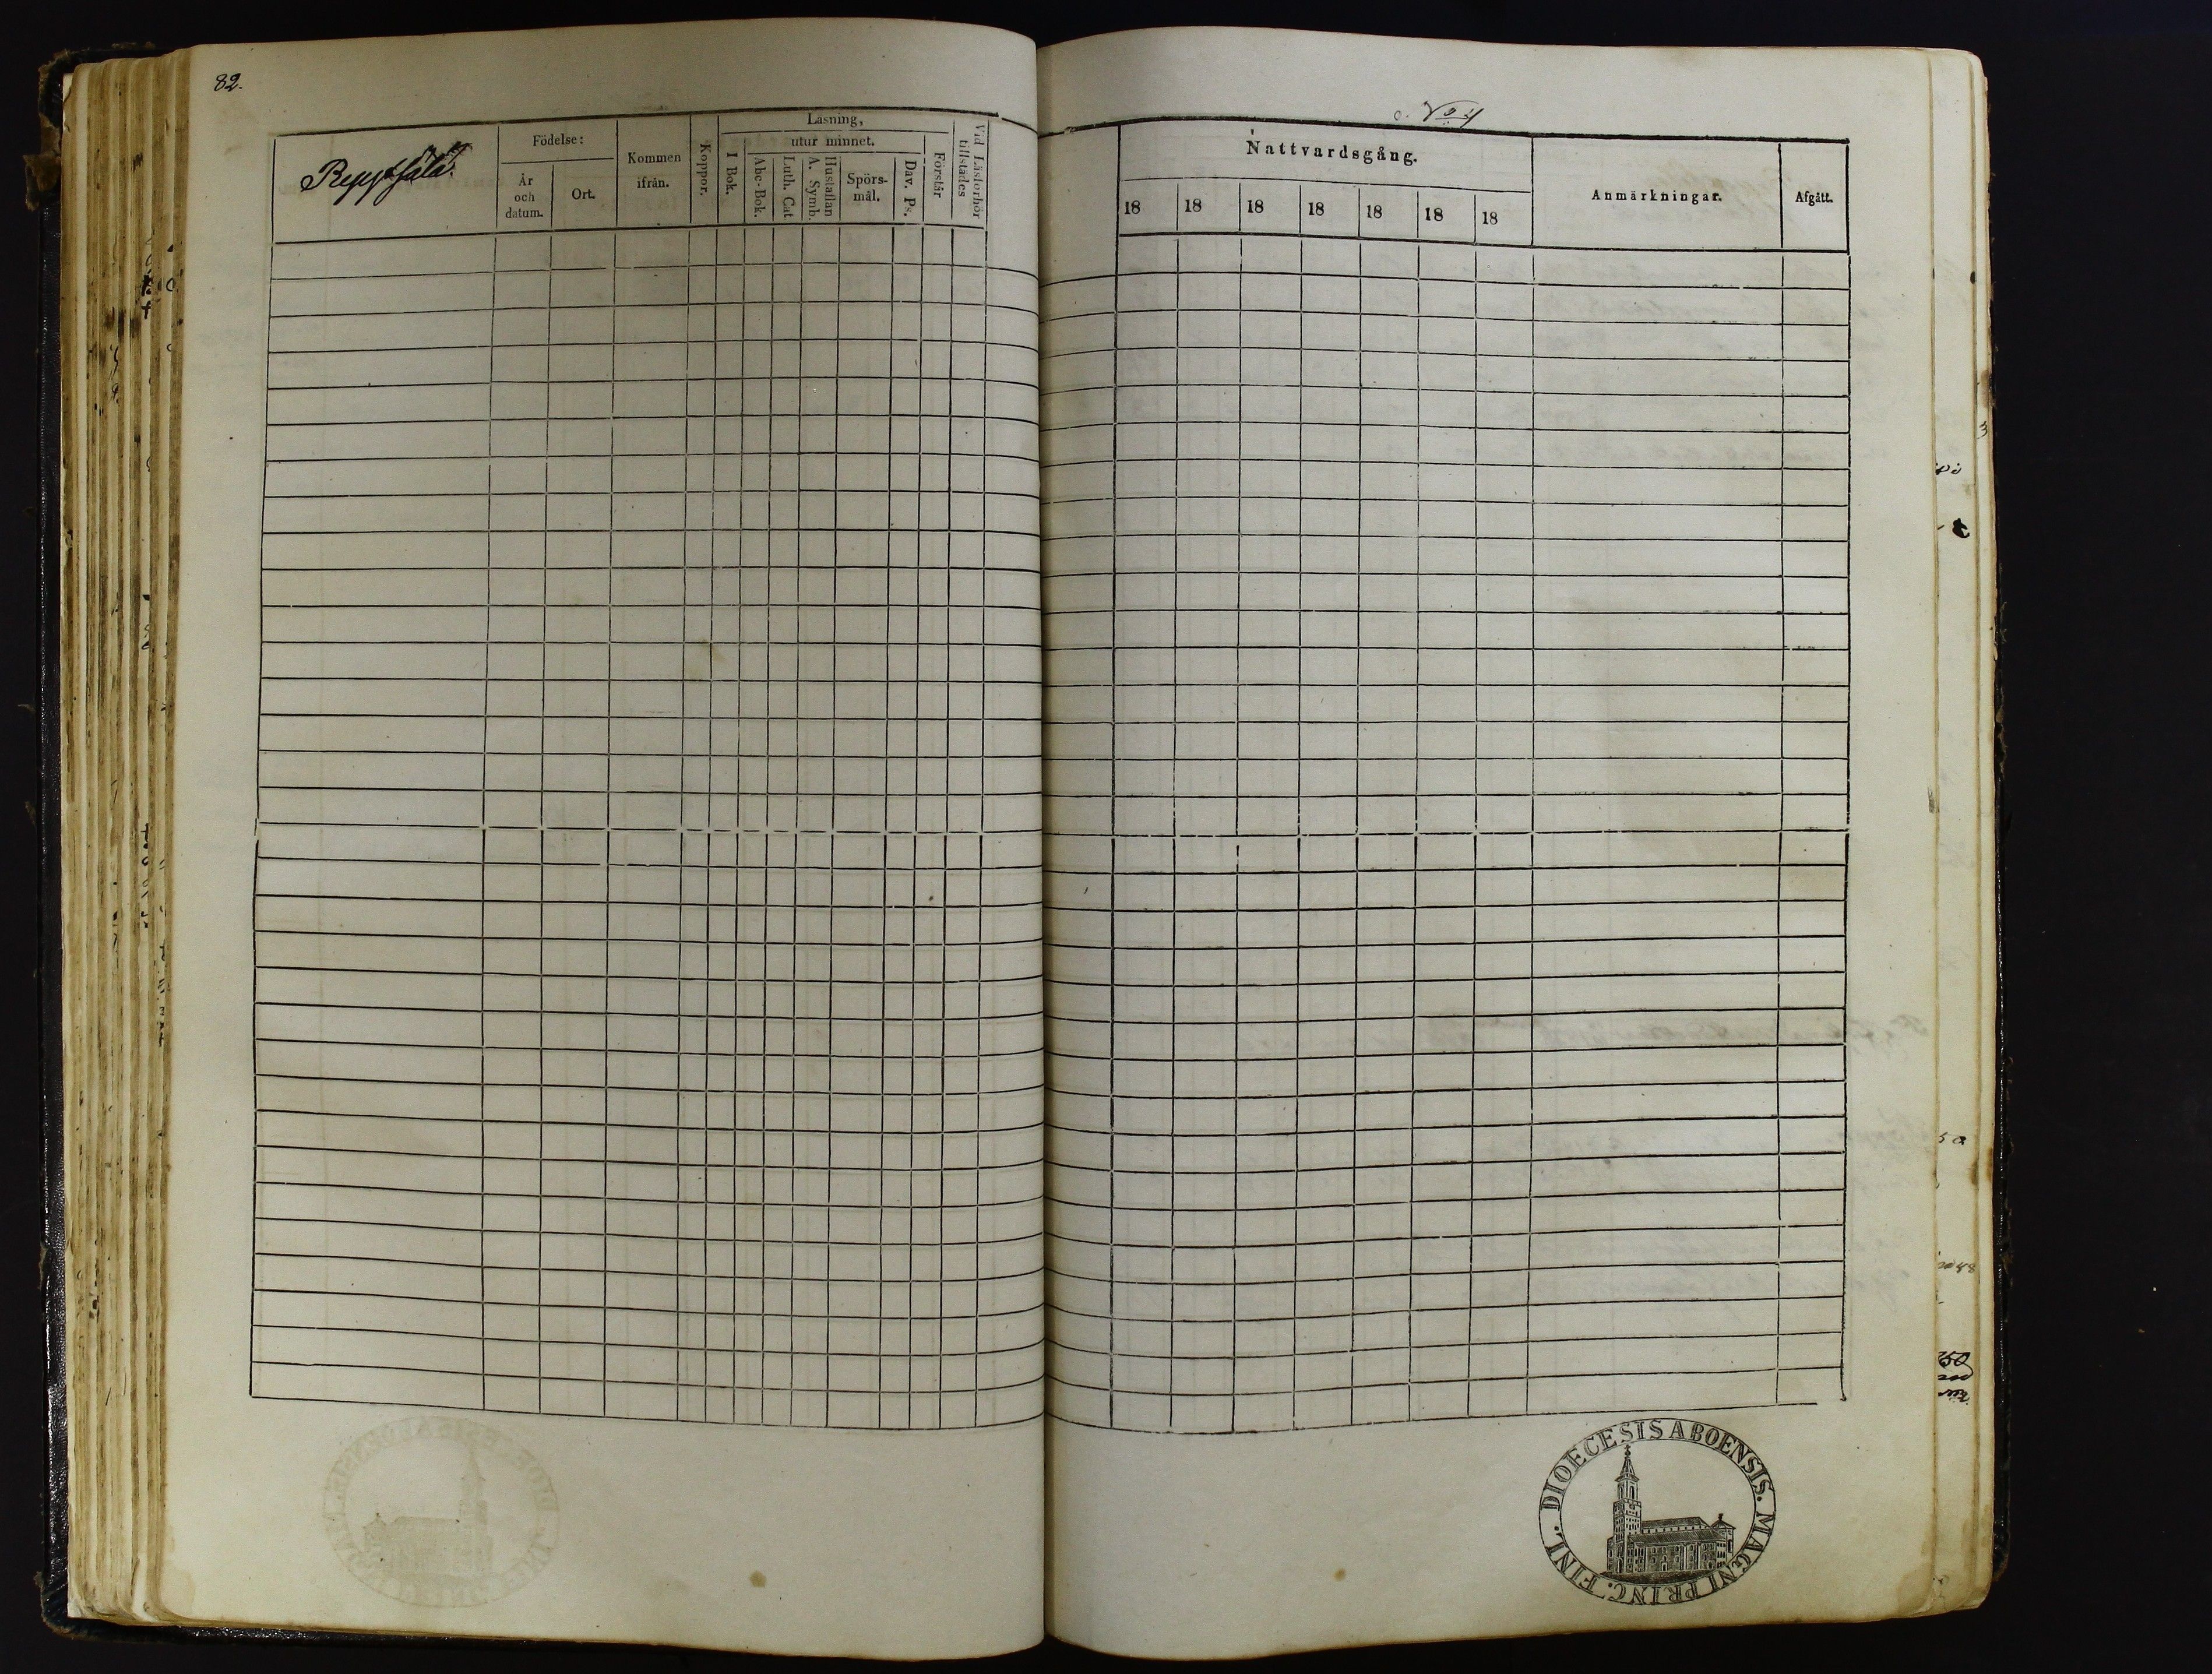 82.
Födelse:
År och datum.
Ort.
Kommen ifrån.
Koppor.
Läsning,
I Bok.
utur minnet.
Abc-Bok.
Luth. Cat
Hustaflan
A. Symb.
Spörs-
mål.
Dav. Ps.
Förstår
Vid Läsförhör
tillstädes
Nattvardsgång.
18 18 18 18 18 18 18
Anmärkningar.
Afgått.
DIOECESIS ABOENSIS. MAGNI PRINC. FINL.